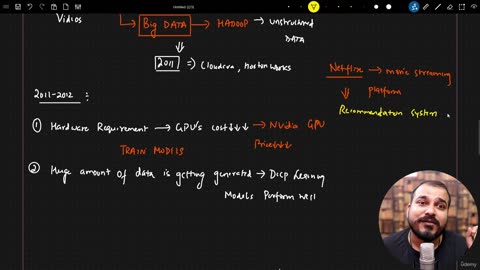 Untitled (2/3)
Videos
BIG DATA → HADOOP → unstructured
DATA
2011 ⇒ Cloudera, Hortonworks
Netflix → movie streaming
platform
Recommendation system
2011-2012 :
① Hardware Requirement → GPU's cost↓↓↓ → Nvidia GPU
TRAIN MODELS
Price↓↓↓
② Huge amount of data is getting generated → Deep Learning
Models Perform well
Udemy